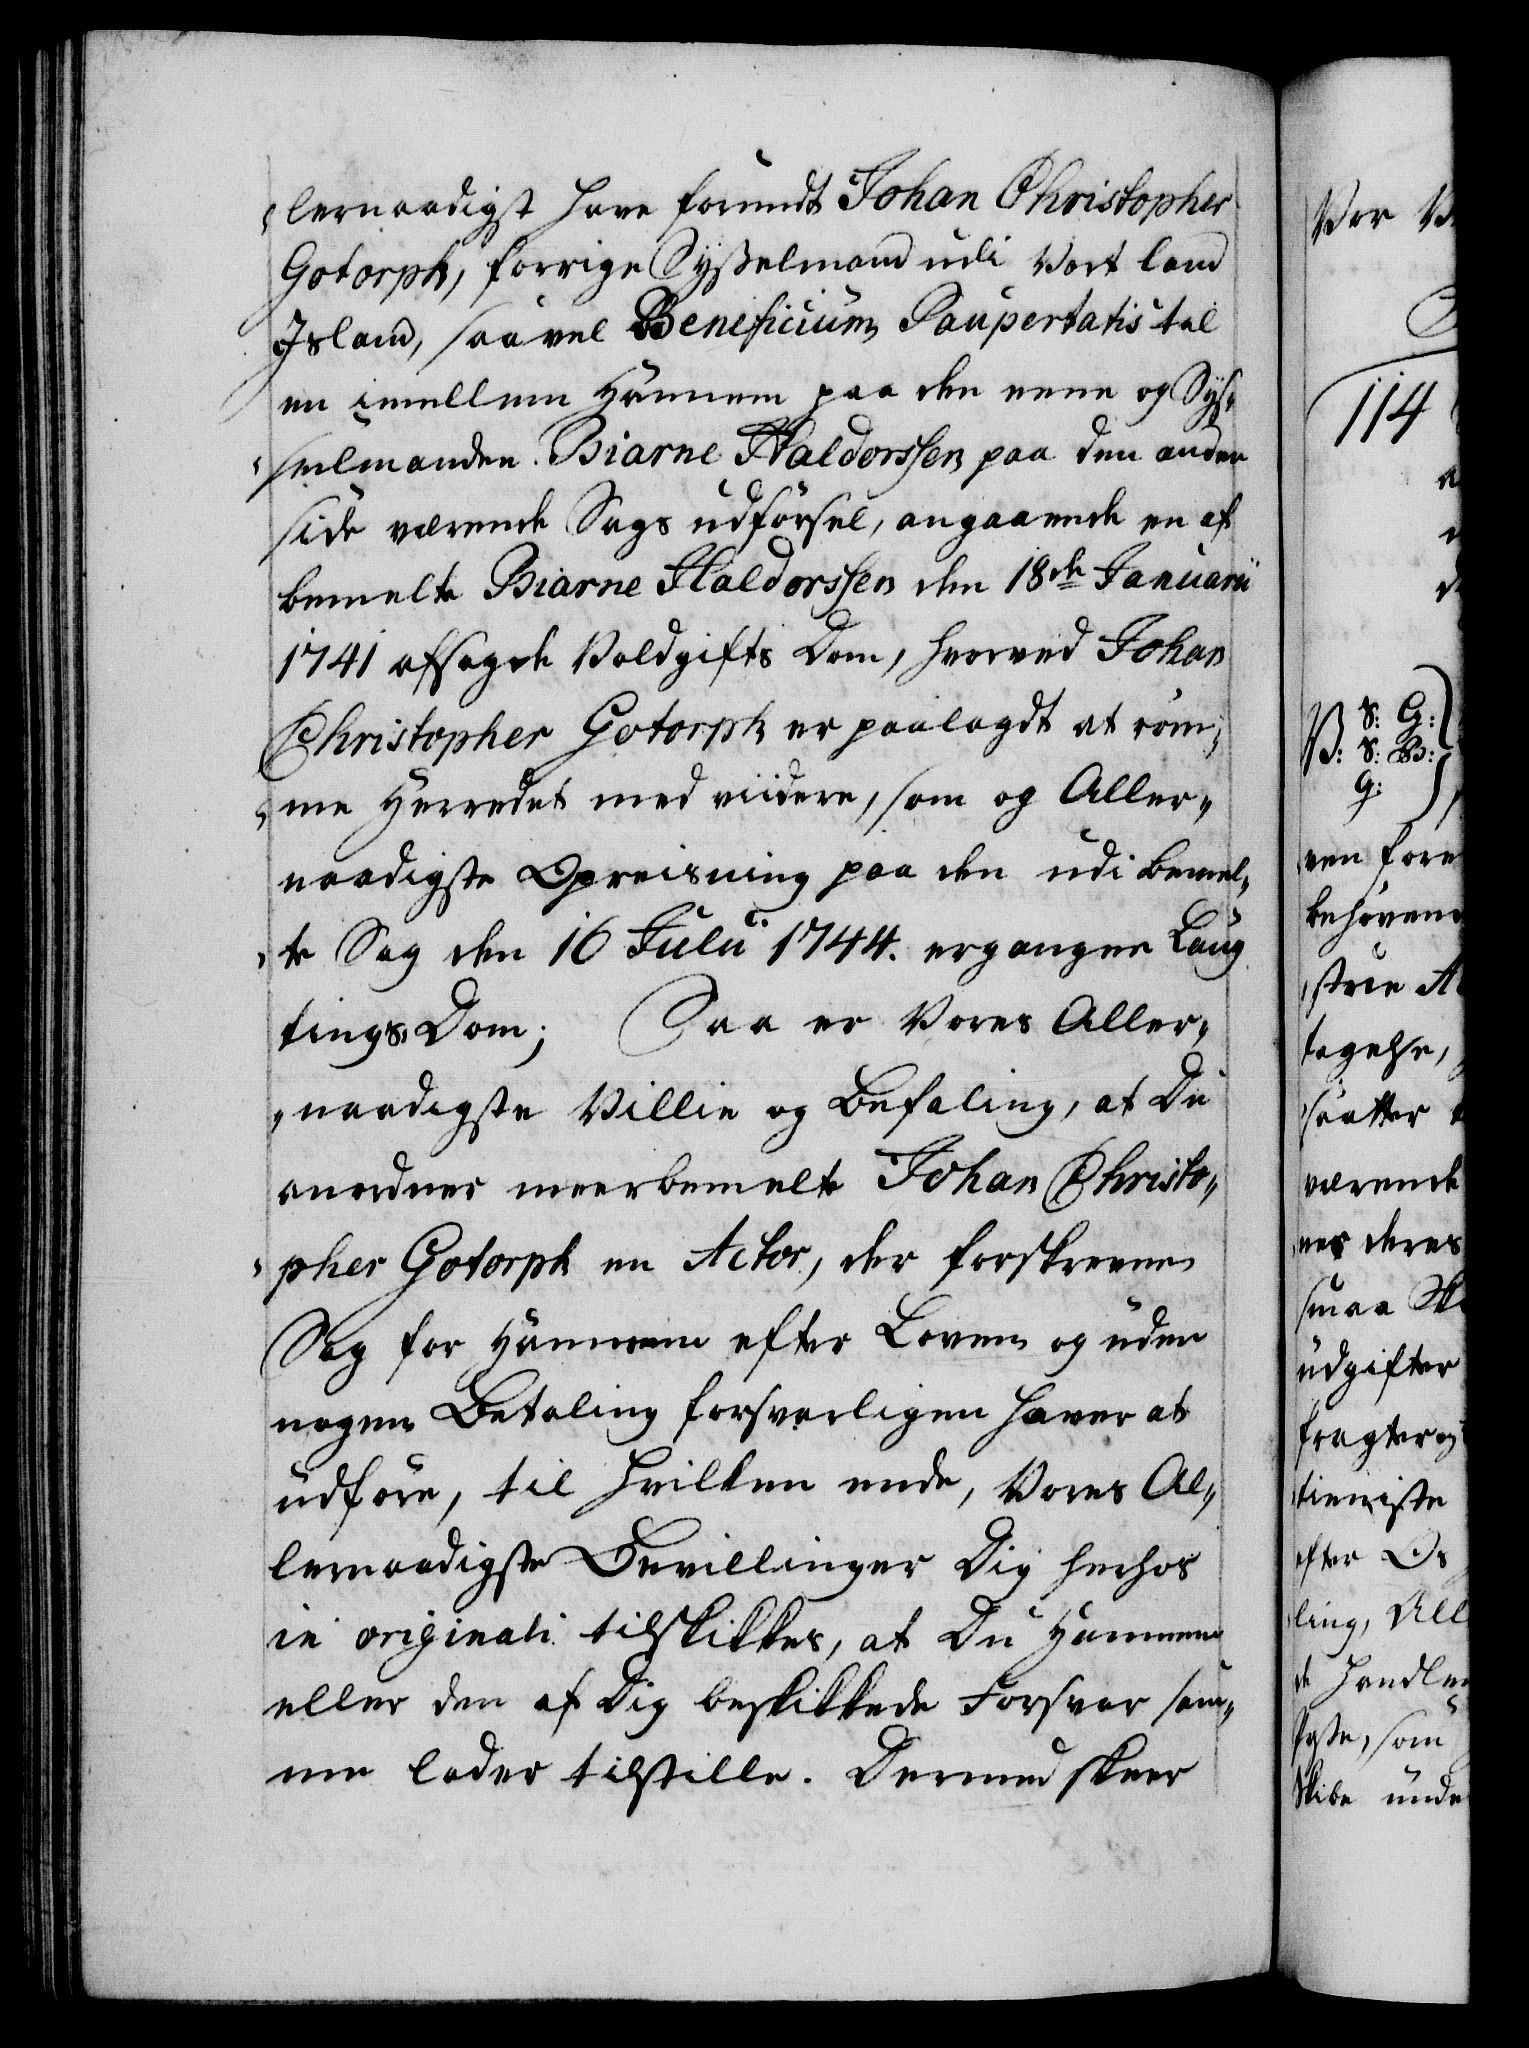 „lernaadigst have forundt Johan Christopher
Gotorph, forrige Sysselmand udi Vort land
Island, saavel Beneficium Paupertatis til
en imellem Hannem paa den eene og Sys„
„selmanden Biarne Haldorssen paa den anden
side værende Sags udförsel, angaaende en af
bemelte Biarne Haldorssen den 18de Januarii
1741 afsagde Voldgifts Dom, hvorved Johan
Christopher Gotorph er paalagdt at röm„
„me Herredet med viidere, som og Aller„
naadigste Opreisning paa den udi bemel„
„te Sag den 16 Julii 1744. ergangne Laug
tings Dom; Saa er Vores Aller„
„naadigste Villie og Befaling, at Du
anordner meerbemelte Johan Christo„
„pher Gotorph en Actor, der forskrevne
Sag for Hannem efter Loven og uden
nogen Betaling forsvarligen haver at
udföre, til hvilken ende, Vores Al„
lernaadigste Bevillinger Dig herhos
in originali tilskikkes, at Du Hannem
eller den af Dig beskikkede Forsvar sam„
me lader tilstille. Dermed skeer
Vor
114
V: S: G:
S: B:
G:
ven fore
behövend
strie
tagelse,
saatter
værende
ner deres
smaa
udgifter
fragter og
tieniste
efter Os
ling, All
de handlen
som
Skibe unde